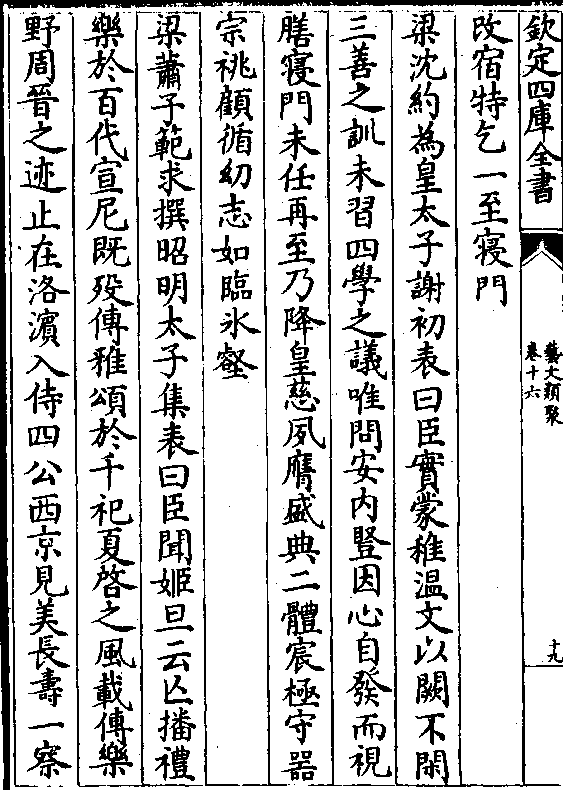 欽定四庫全書
藝文類聚
卷十六
十九
改宿特乞一至寢門
梁沈約為皇太子謝初表曰臣實蒙稚温文以闕不閑
三善之訓未習四學之議唯問安内豎因心自發而視
膳寢門未任再至乃降皇慈夙膺盛典二體宸極守器
宗祧顧循幼志如臨氷壑
梁蕭子範求撰昭明太子集表曰臣聞姬旦云亾播禮
樂於百代宣尼既歿傳雅頌於千祀夏啓之風載傳樂
野周晉之迹止在洛濱入侍四公西京見美長壽一察